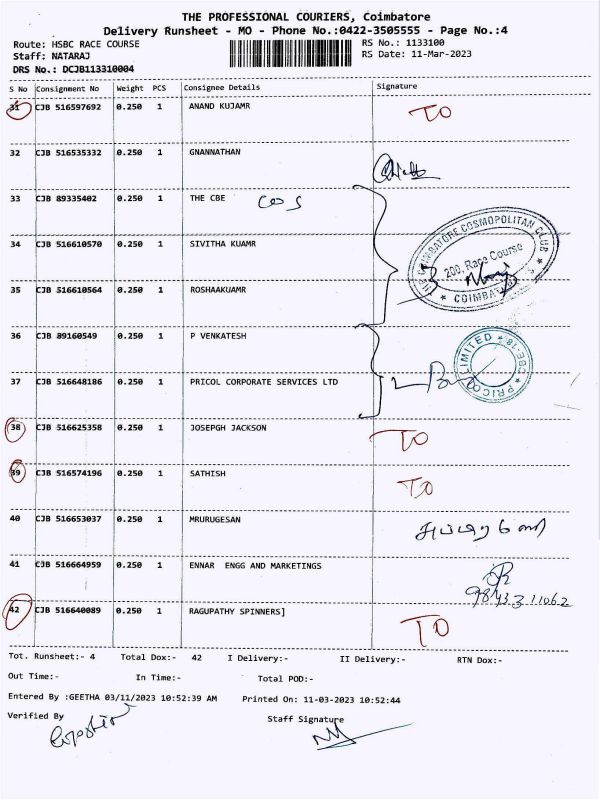 THE PROFESSIONAL COURIERS, Coimbatore
Delivery Runsheet - MO - Phone No.:0422-3505555 - Page No.:4
Route: HSBC RACE COURSE RS No.: 1133100
Staff: NATARAJ RS Date: 11-Mar-2023
DRS No.: DCJB113310004
S No Consignment No Weight PCS Consignee Details Signature
31 CJB 516597692 0.250 1 ANAND KUJAMR TO
32 CJB 516535332 0.250 1 GNANNATHAN
33 CJB 89335402 0.250 1 THE CBE cos
THE COIMBATORE COSMOPOLITAN CLUB
34 CJB 516610570 0.250 1 SIVITHA KUAMR 200, Race Course
35 CJB 516610564 0.250 1 ROSHAAKUAMR
36 CJB 89160549 0.250 1 P VENKATESH
37 CJB 516648186 0.250 1 PRICOL CORPORATE SERVICES LTD PRICOL LIMITED CBE-18
38 CJB 516625358 0.250 1 JOSEPGH JACKSON TO
39 CJB 516574196 0.250 1 SATHISH TO
40 CJB 516653037 0.250 1 MRURUGESAN
41 CJB 516664959 0.250 1 ENNAR ENGG AND MARKETINGS
42 CJB 516640089 0.250 1 RAGUPATHY SPINNERS] TO
Tot. Runsheet:- 4 Total Dox:- 42 I Delivery:- II Delivery:- RTN Dox:-
Out Time:- In Time:- Total POD:-
Entered By :GEETHA 03/11/2023 10:52:39 AM Printed On: 11-03-2023 10:52:44
Verified By Staff Signature